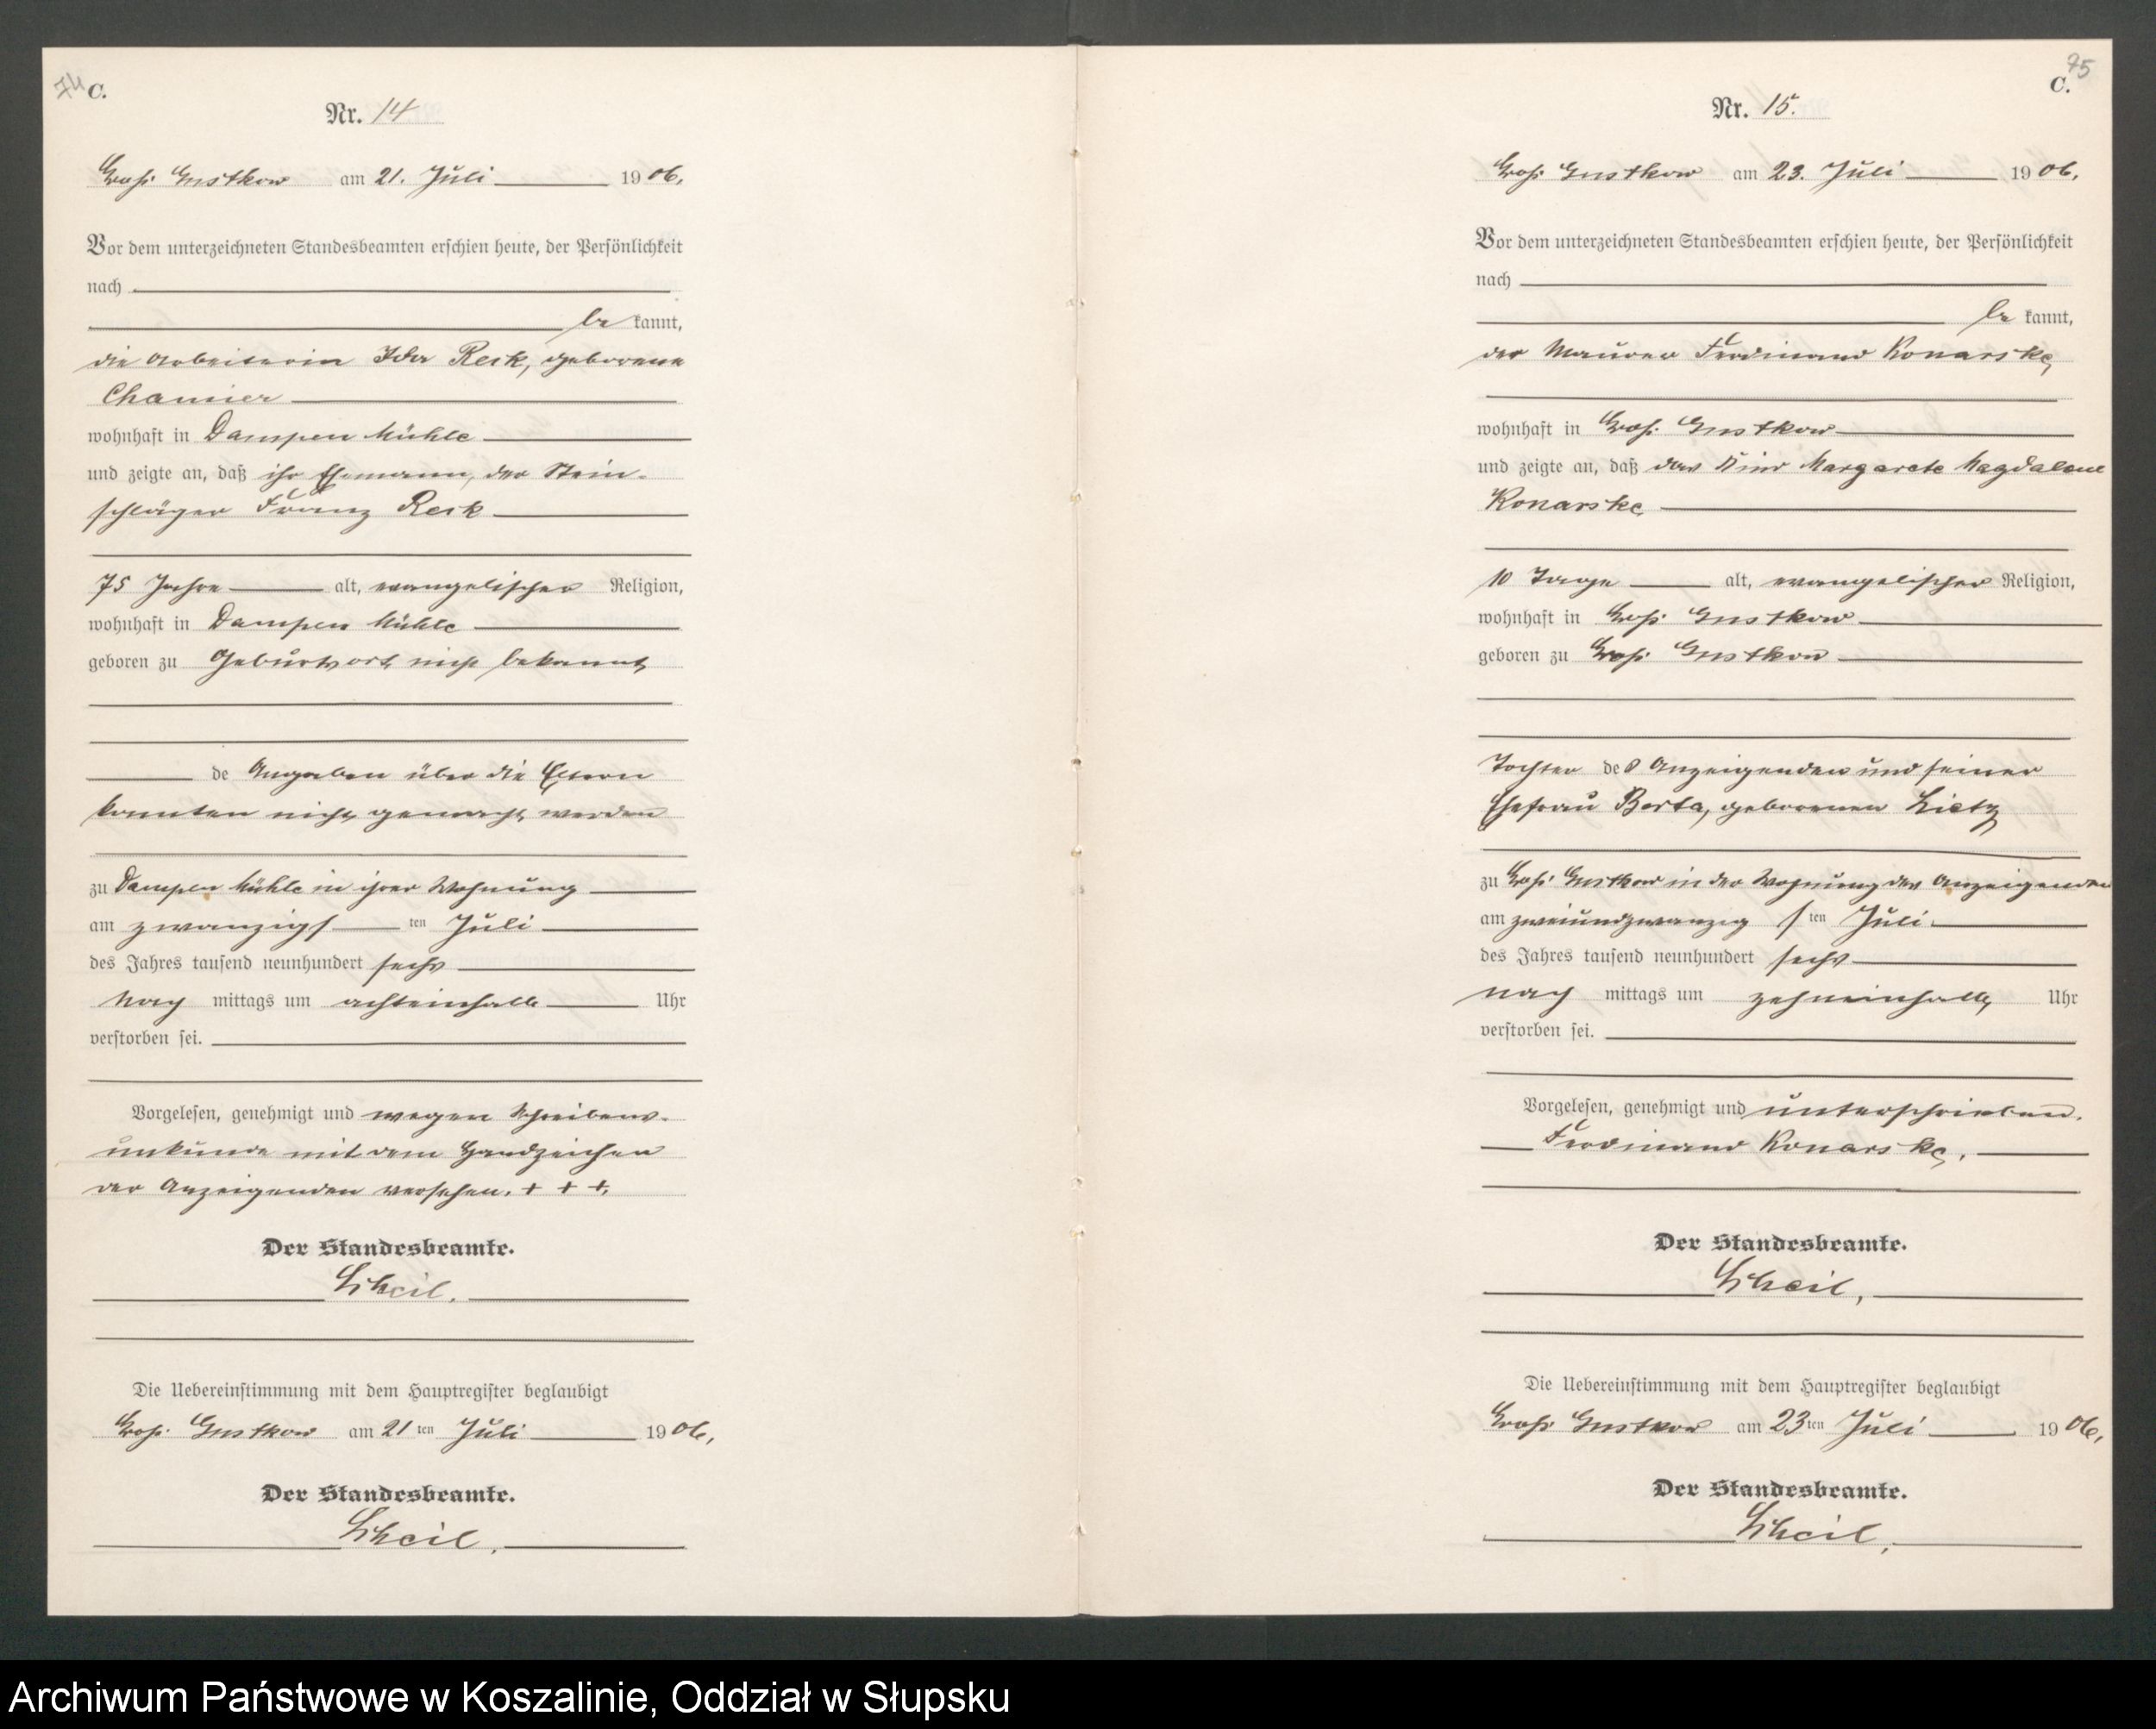 74
C.
Nr. 14
Groß Gustkow am 21. Juli 1906.
Vor dem unterzeichneten Standesbeamten erschien heute, der Persönlichkeit
nach
be kannt,
die Arbeiterin Ida Resk, geborene
Chamier
wohnhaft in Dampen Mühle
und zeigte an, daß ihr Ehemann, der Stein-
schläger Franz Resk
75 Jahre alt, evangelischer Religion,
wohnhaft in Dampen Mühle
geboren zu Geburtsort nicht bekannt
de Angaben über die Eltern
konnten nicht gemacht werden
zu Dampen Mühle in ihrer Wohnung
am zwanzigs ten Juli
des Jahres tausend neunhundert sechs
Nach mittags um achteinhalb Uhr
verstorben sei.
Vorgelesen, genehmigt und wegen Schreibens-
unkunde mit dem Handzeichen
der Anzeigenden versehen. + + +.
Der Standesbeamte.
Scheil.
Die Uebereinstimmung mit dem Hauptregister beglaubigt
Groß Gustkow am 21 ten Juli 1906.
Der Standesbeamte.
Scheil.
75
C.
Nr. 15.
Groß Gustkow am 23. Juli 1906.
Vor dem unterzeichneten Standesbeamten erschien heute, der Persönlichkeit
nach
be kannt,
der Maurer Ferdinand Konarske,
wohnhaft in Groß Gustkow
und zeigte an, daß das Kind Margarete Magdalene
Konarske
10 Tage alt, evangelischer Religion,
wohnhaft in Groß Gustkow
geboren zu Groß Gustkow
Tochter des Anzeigenden und seiner
Ehefrau Berta, geborenen Lietz
zu Groß Gustkow in der Wohnung des Anzeigenden
am zweiundzwanzig s ten Juli
des Jahres tausend neunhundert sechs
nach mittags um zehneinhalb Uhr
verstorben sei.
Vorgelesen, genehmigt und unterschrieben.
Ferdinand Konarske.
Der Standesbeamte.
Scheil.
Die Uebereinstimmung mit dem Hauptregister beglaubigt
Groß Gustkow am 23ten Juli 1906.
Der Standesbeamte.
Scheil.
Archiwum Państwowe w Koszalinie, Oddział w Słupsku